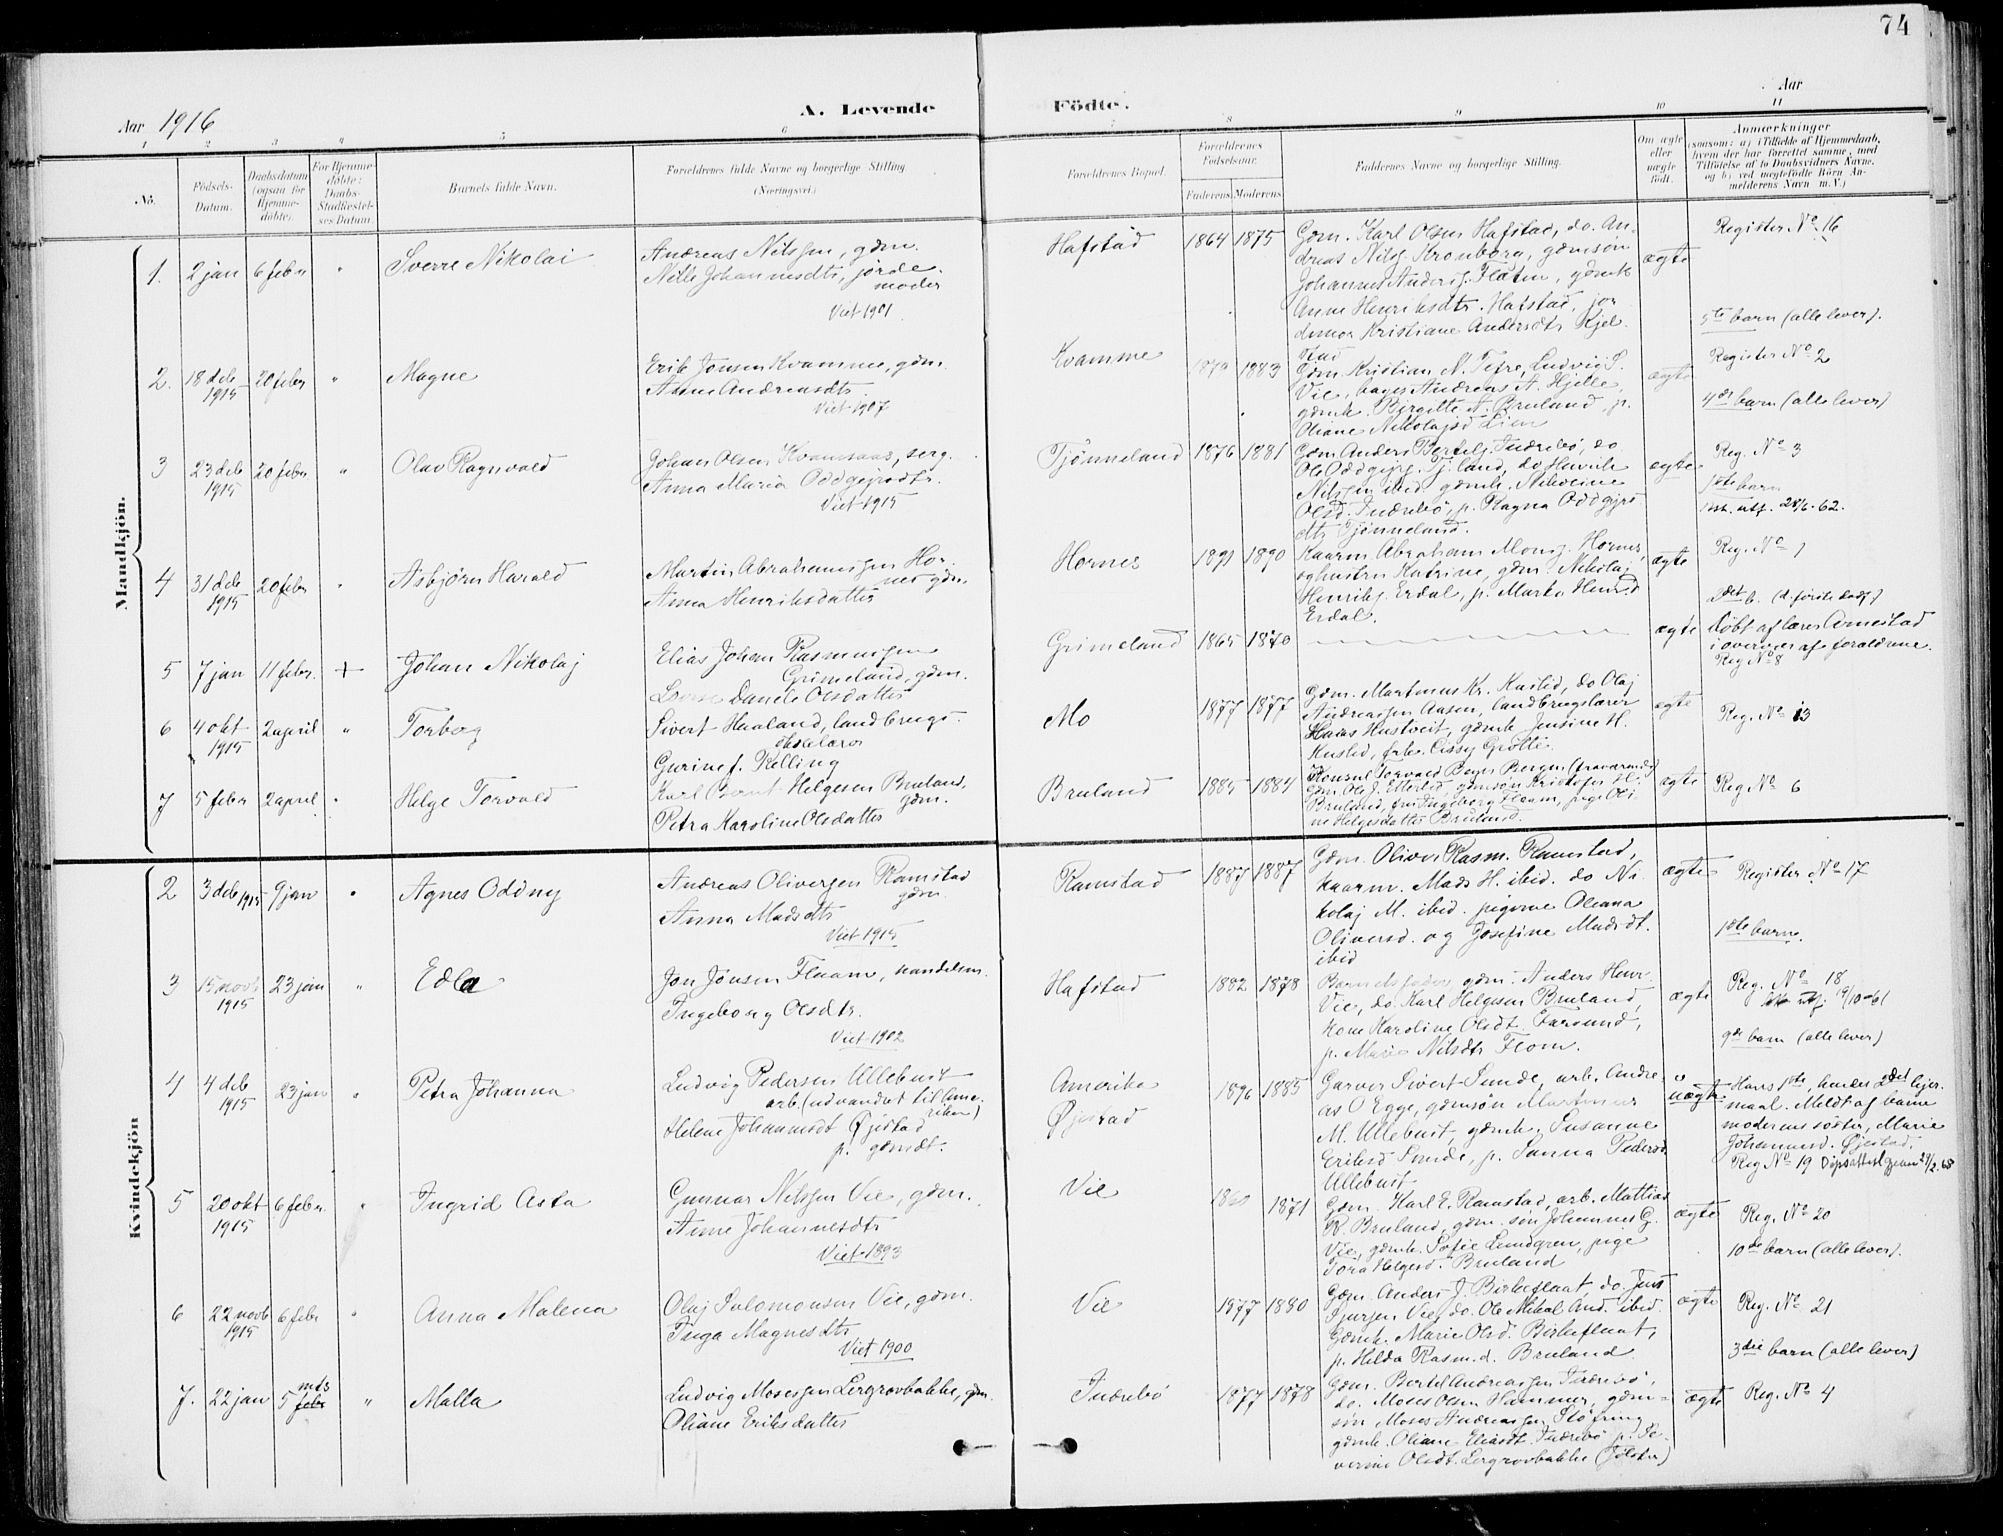 74
Aar 1916
A. Levende Födte.
Aar
1 2 3 4 5 6 7 8 9 10 11
No.
Födsels-Datum.
Daabsdatum (ogsaa for Hjemme-döbte).
For Hjemme-döbte: Daabs-Stadfæstelses Datum.
Barnets fulde Navn.
Forældrenes fulde Navne og borgerlige Stilling (Næringsvei.)
Forældrenes Bopæl.
Forældrenes Födselsaar.
Faderens Moderens
Faddernes Navne og borgerlige Stilling.
Om ægte eller uægte födt.
Anmærkninger
(saasom: a) i Tilfælde af Hjemmedaab, hvem der har forrettet samme, med Tilföielse af to Daabsvidners Navne, og b) ved uegtefödte Börn Anmelderens Navn m. V.)
Mandkjön.
1. 2 jan 6 febr " Sverre Nikolai
Andreas Nilssen, gdm.
Nille Johannesdtr, jorde-
moder
Viet 1901
Hafstad 1864 1875
Gdm. Karl Olsen Hafstad, do. An-
dreas Nilss. Kronborg, gdmsøn
Johannes Anders. Flaten, gdmk
Anne Henriksdtr. Hafstad, jor
demor Kristiane Andersdtr Kjel
stad
ægte
Register No 16
5te barn (alle lever).
2. 18 deb 1915 20 febr " Magne
Erik Jonsen Kvamme, gdm.
Anne Andreasdtr
Viet 1907
Kvamme 1883
Gdm. Kristian N. Tefre, Ludvig S.
Vie, bager Andreas A. Hjelle,
gdmk. Birgitte A. Bruland, p.
Oliane Nikolajsd Lien
ægte
Register No 2
4de barn (alle lever)
3 23 deb 1915 20 febr " Olav Ragnvald
Johan Olsen Kvamsaas, serg.
Anna Maria Oddgejrsdtr.
Viet 1915
Tjønneland 1876 1881
Gdm Anders Bertels. Indrebø, do
Ole Oddgejrs. Tj.land, do
Nilssen ibid gdmk.
Olsd. Indrebø, p. Ragna Oddgjrs
dtr Tjønneland.
ægte
Reg. No 3
1ste barn
28/6-62.
4 31 deb 1915 20 febr " Asbjørn Harald
Martin Abrahamsen Hor-
nes gdm.
Anna Henriksdatter
Hornes 1891 1890
Kaarm Abraham Mons. Hornes,
og hustru Katrine, gdm. Nikolaj
Henriks. Erdal, p. Marta Henrd
Erdal.
ægte
Reg. No 1
2det b. (d. første dødf)
5 7 jan 11 febr. + Johan Nikolaj
Elias Johan Rasmussen
Grimeland, gdm.
Danele Olsdatter
Grimeland 1865 1870
ægte
Døbt af lærer Amestad
i overvær af forældrene.
Reg No 8
6 4 okt 1915 2 april " Torborg
Sivert Haaland, landbrugs-
skolelærer
Gurine f. Kelling
Mo 1877 1877
Gdm. Martinus Kr. Kusted, do Olaj
Andreassen Aasen, landbrugslærer
Haas Hustveit, gdmk Jensine H.
Kusted, frk. Cissy Grotti.
ægte
Reg. No 13
7 5 febr 2 april " Helge Torvald
Karl Bernt Helgesen Bruland,
gdm.
Petra Karoline Olsdatter
Bruland 1885 1884
Konsul Torvald Beyer Bergen (fraværende)
Gdm Ole J. gdmsøn Kristofer H.
Bruland, fru Ingeborg Flaam, pige Oli-
ne Helgesdatter Bruland.
ægte
Reg No 6
Kvindekjön
2 3 deb 1915 9 jan " Agnes Oddny
Andreas Oliversen Ramstad
gdm.
Anna Madsdtr
Viet 1915
Ramstad 1887 1887
Gdm. Oliver Rasm. Ramstad,
kaarm. Mads H. ibid. do Ni-
kolaj M. ibid. pigerne Oleana
Oliversd. og Josefine Madsdt.
ibid
ægte
Register No 17
1ste barn.
3 15 novb 1915 23 jan " Edla
Jon Jonsen Flaam, handelsm.
Ingeborg Olsdtr.
Viet 1902
Hafstad 1882 1878
Barnets fader, gdm. Anders Henr
Vie, do. Karl Helgesen Bruland,
kone Karoline Olsdt. Farsund,
p. Marie Nilsdtr Flom.
ægte
Reg. No 18
19/10-61
9de barn (alle lever)
4 4 deb 1915 23 jan " Petra Johanna
Ludvig Pedersen Ullebust
arb. (udvandret til Ame-
rika)
Helene Johannesdt Øjestad
p. gdmdt.
Amerika
Øjestad 1896 1885
Garver Sivert Sunde, arb. Andre-
as O Egge, gdmsøn Martinus
M. Ullebust, gdmk. Susanne
Eriksd Sunde, p. Sanna Pedersd
Ullebust
uægte
Hans 1ste, hendes 2det lejer-
maal. Meldt af barne
moderens søster, Marie
Johannesd. Øjestad.
Reg No 19
5 20 okt 1915 6 febr " Ingrid Asta
Gunnar Nilssen Vie, gdm.
Anne Johannesdtr
Viet 1893
Vie 1871
Gdm. Karl E. Ramstad, arb. Mattias
W. Bruland, gdm. søn Johannes G.
Vie, gdmk. Sofie Lundgren, pige
Tora Helgesd. Bruland
ægte
Reg. No 20
10de barn (alle lever).
6 22 novb 1915 6 febr " Anna Malena
Olaj Salomonsen Vie, gdm.
Inga Magnesdtr
Viet 1900
Vie 1877 1880
Gdm. Anders J. Birkeflaat, do. Jens
Sjursen Vie, do. Ole Mikal And. ibid.
Gdmk. Marie Olsd. Birkeflaat,
p. Hilda Rasm.d. Bruland.
ægte
Reg. No 21
3die barn (alle lever)
7. 22 jan 5 mts " Malla
Ludvig Mosessen Lergrovbakke, gdm.
Oliane Eriksdatter
Indrebø 1877 1878
Gdm. Bertel Andreassen Indrebø,
do. Moses Olsen Hammer, gdm-
søn Moses Andreassen Støfring
gdmk. Oliane Eliasdt. Indrebø p. Se-
verine Olsdt. Lergrovbakke (Jølster)
ægte
Reg. No 4